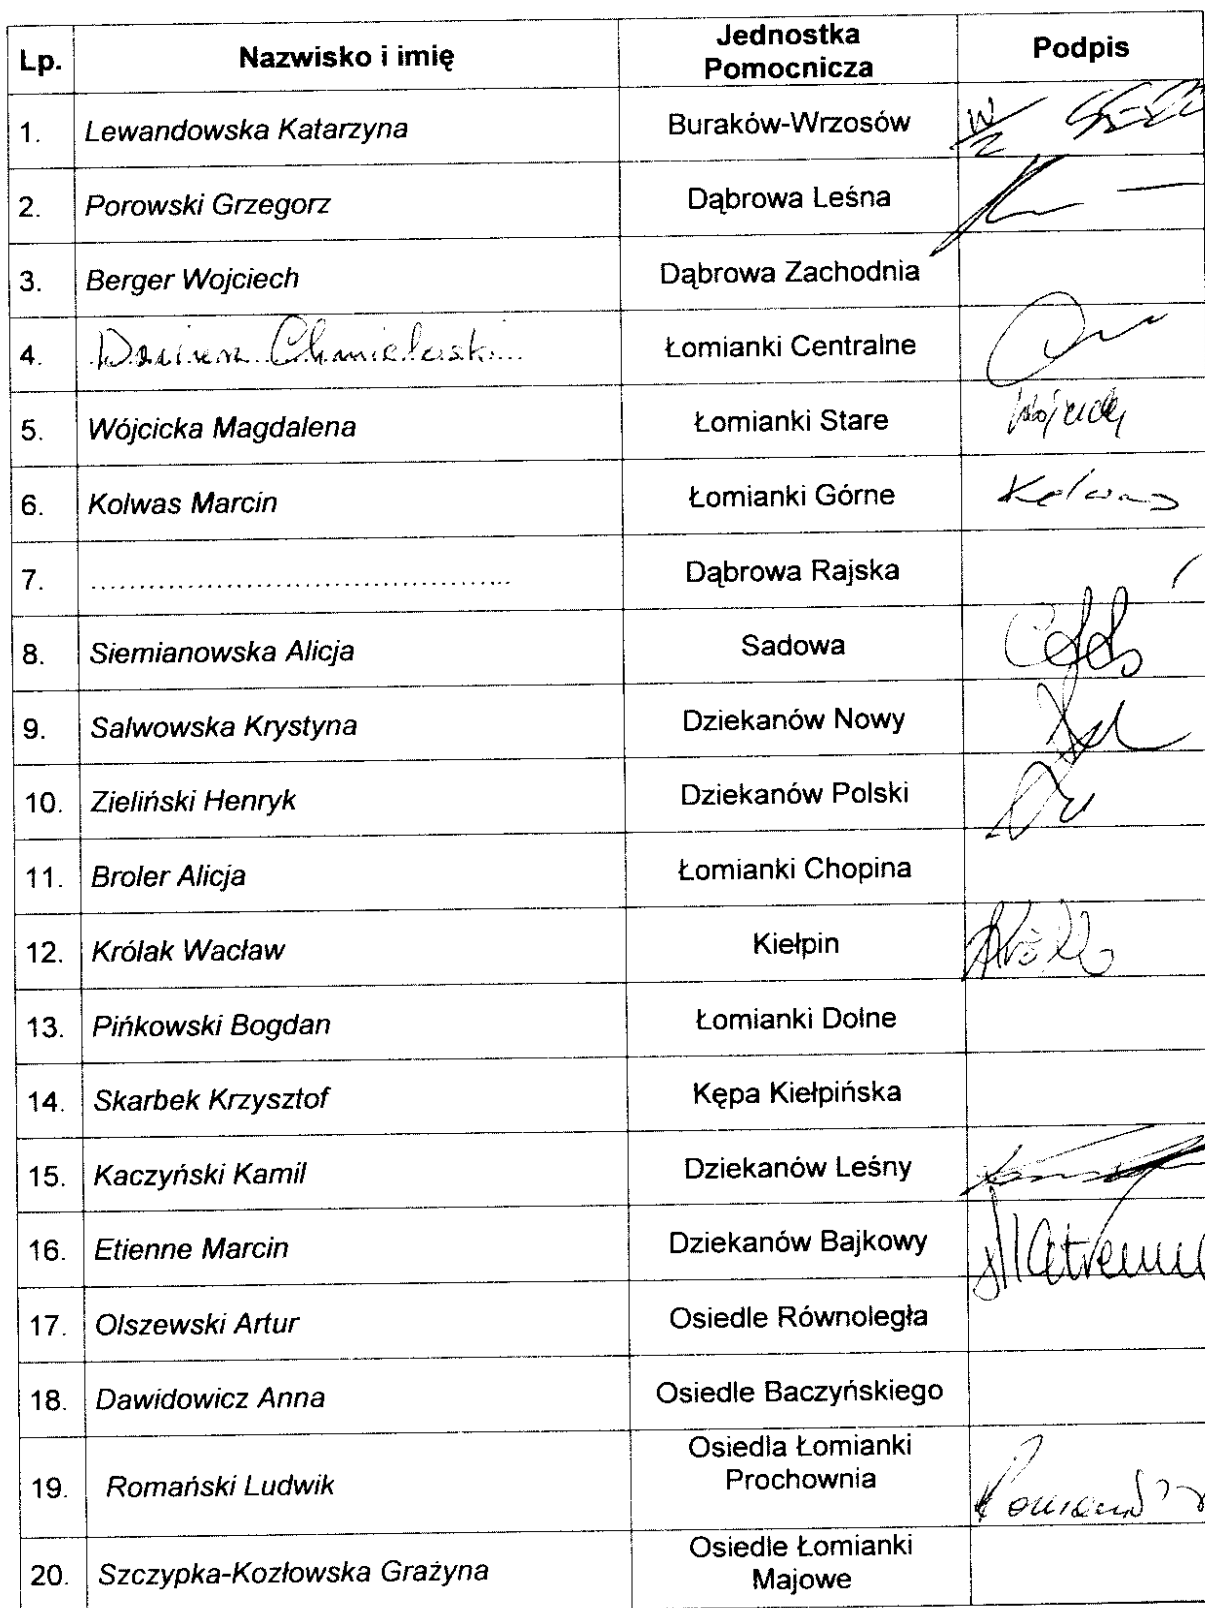 Lp. Nazwisko i imię Jednostka Pomocnicza Podpis
1. Lewandowska Katarzyna Buraków-Wrzosów
2. Porowski Grzegorz Dąbrowa Leśna
3. Berger Wojciech Dąbrowa Zachodnia
4. Dariusz Chmielewski Łomianki Centralne
5. Wójcicka Magdalena Łomianki Stare
6. Kolwas Marcin Łomianki Górne Kolwas
7. ............................................ Dąbrowa Rajska
8. Siemianowska Alicja Sadowa
9. Salwowska Krystyna Dziekanów Nowy
10. Zieliński Henryk Dziekanów Polski
11. Broler Alicja Łomianki Chopina
12. Królak Wacław Kiełpin
13. Pińkowski Bogdan Łomianki Dolne
14. Skarbek Krzysztof Kępa Kiełpińska
15. Kaczyński Kamil Dziekanów Leśny
16. Etienne Marcin Dziekanów Bajkowy
17. Olszewski Artur Osiedle Równoległa
18. Dawidowicz Anna Osiedle Baczyńskiego
19. Romański Ludwik Osiedla Łomianki Prochownia
20. Szczypka-Kozłowska Grażyna Osiedle Łomianki Majowe